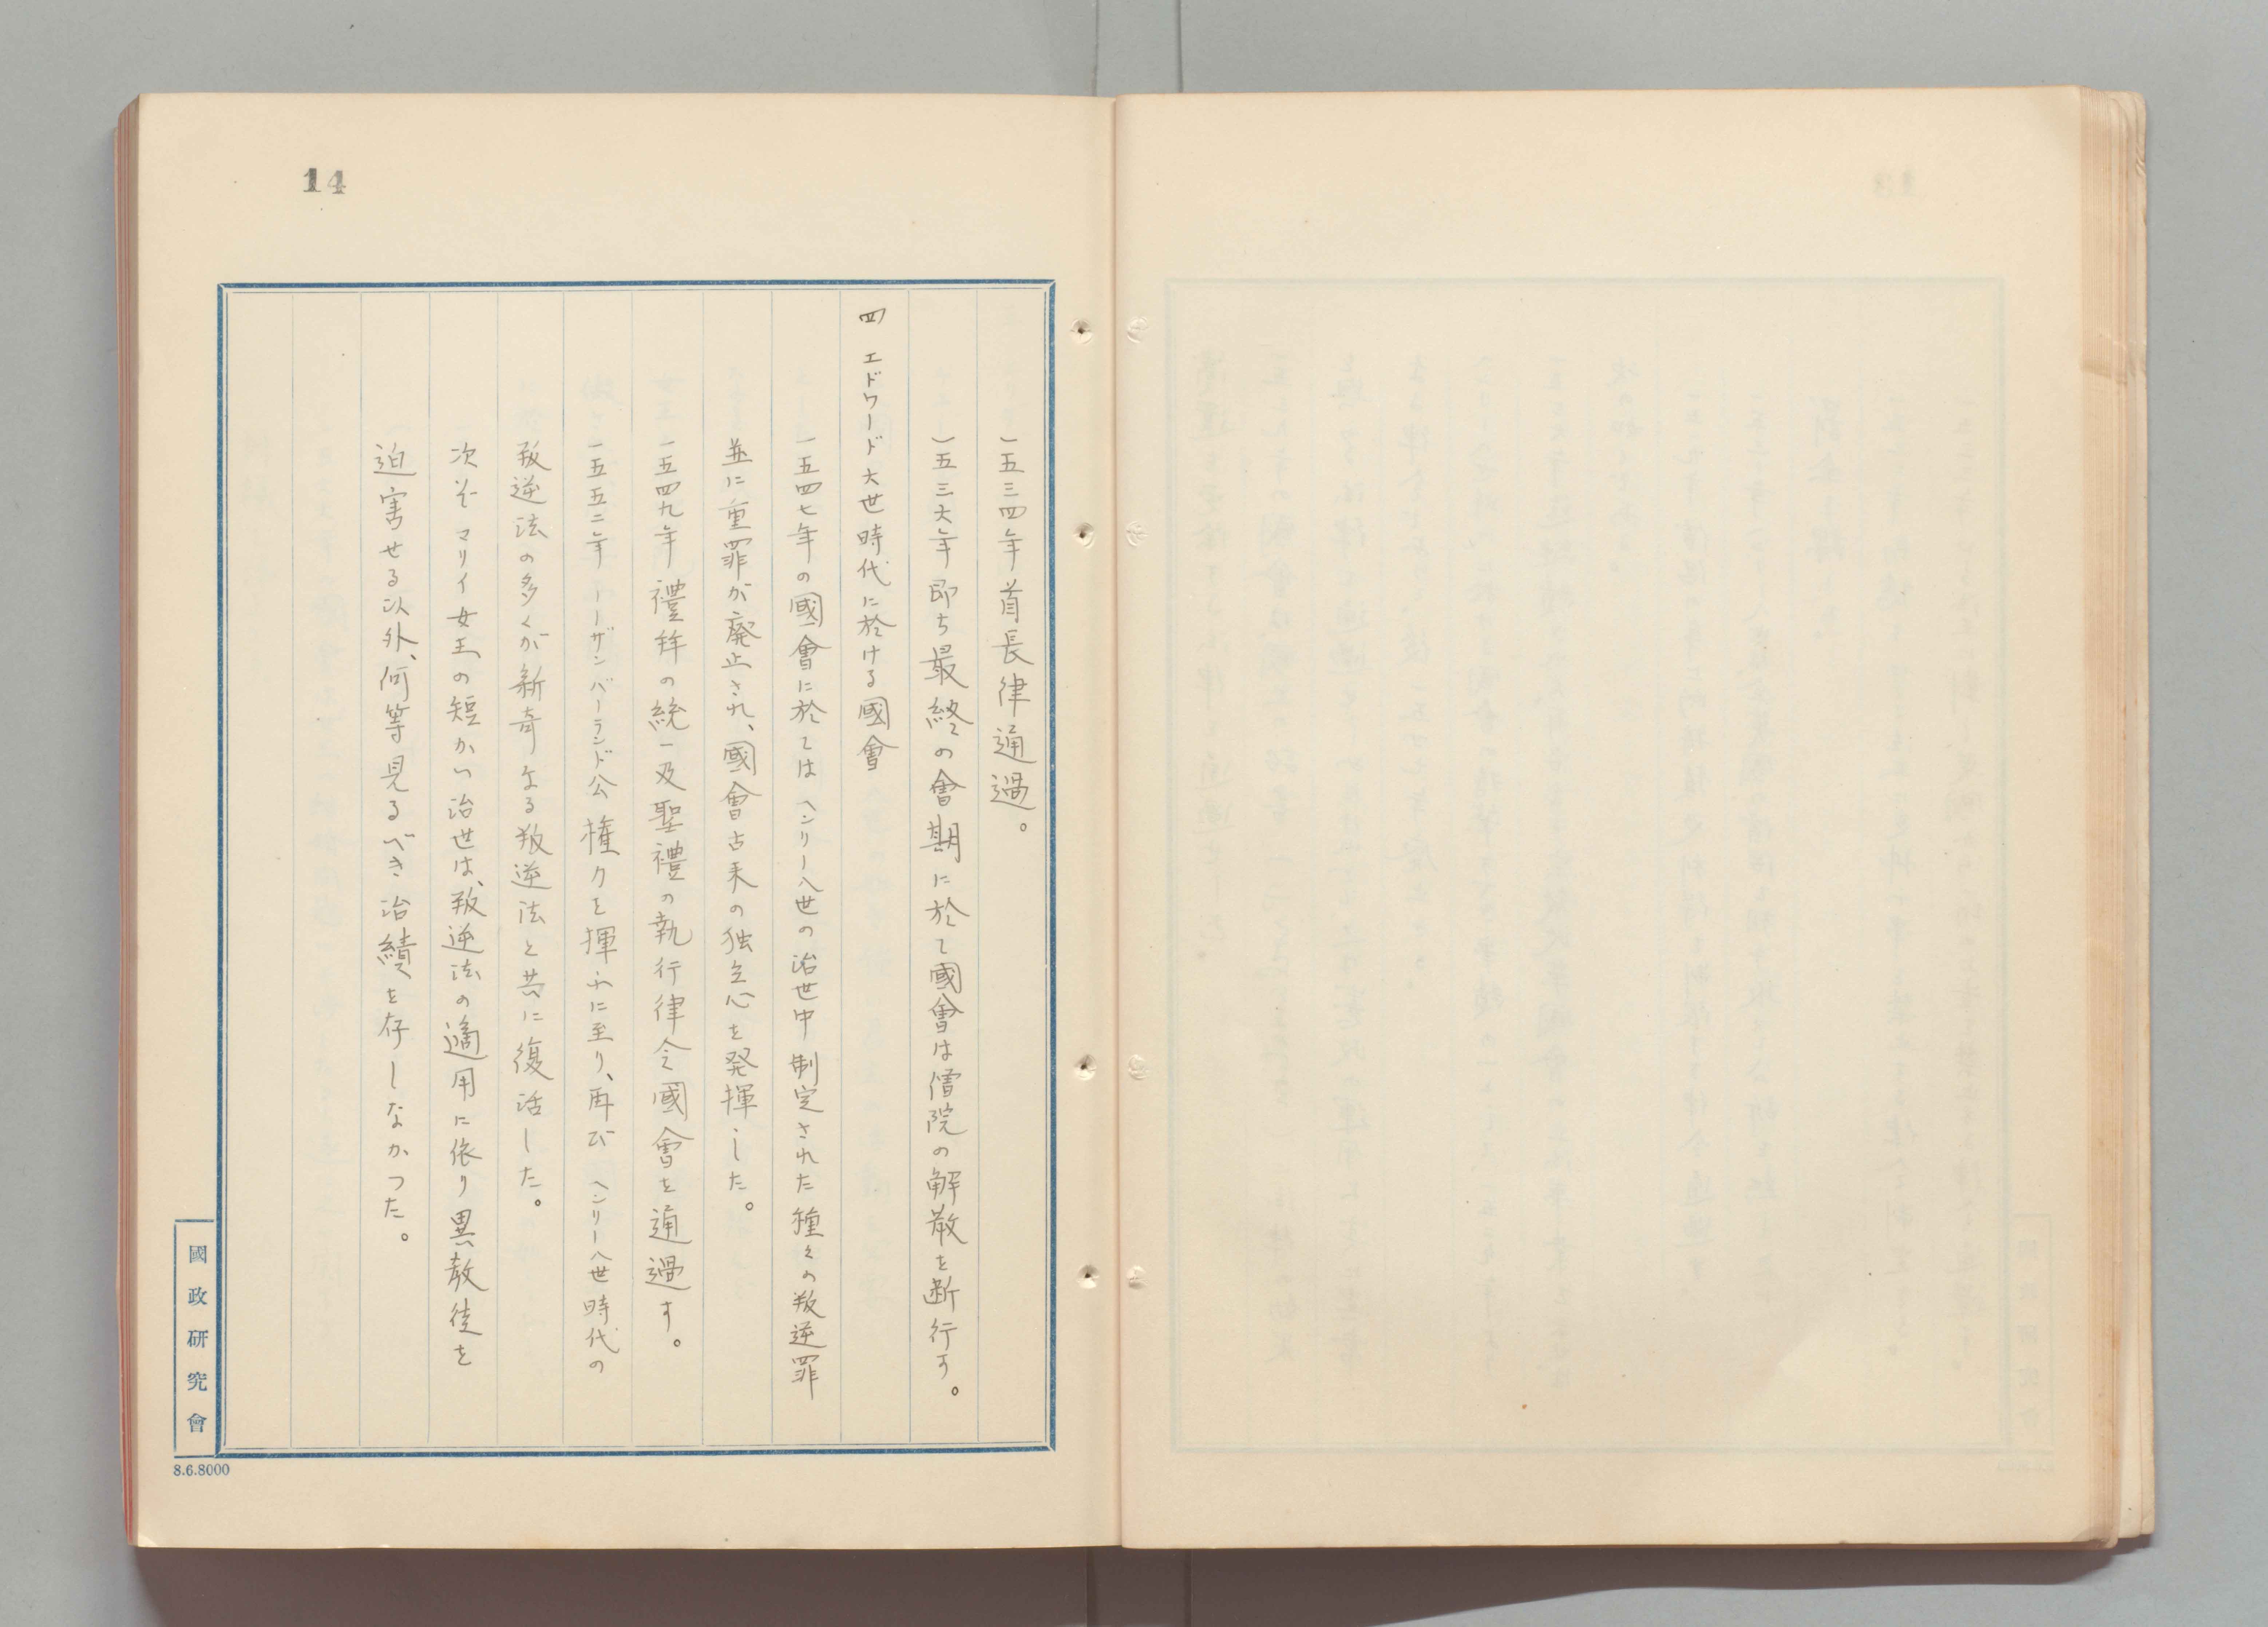 14
一五三四年首長律通過。
一五三六年即ち最終の會期に於て國會は僧院の解散を断行す。
四 エドワード六世時代に於ける國會
一五四七年の國會に於ては ヘンリー八世の治世中制定された種々の叛逆罪
並に重罪が廃止され、國會古来の独立心を発揮した。
一五四九年 禮拝の統一及聖禮の執行律令國會を通過す。
一五五二年 ノーザンバーランド公権力を揮ふに至り、再び ヘンリー八世時代の
叛逆法の多くが新奇なる叛逆法と共に復活した。
次ぐ マリイ女王の短かい治世は、叛逆法の適用に依り異教徒を
迫害せる以外、何等見るべき治績を存しなかつた。
國政研究會
8.6.8000